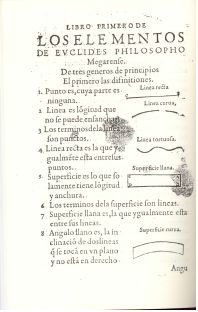 LIBRO PRIMERO DE
LOS ELEMENTOS
DE EVCLIDES PHILOSOPHO
Megarense.
De tres generos de principios
El primero las difiniciones.
1 Punto es, cuya parte es
ninguna.
Linea recta
2 Linea es lōgitud que
no se puede ensanchar
Linea curua,
3 Los terminos de la linea
son punctos.
4 Linea recta es la que ygualmēte esta entre sus
puntos.
Linea tortuosa.
5 Superficie es lo que solamente tiene lōgitud
y anchura.
Superficie llana.
6 Los terminos dela superficie son lineas.
7 Superficie llana es, la que ygualmente esta
entre sus lineas.
8 Angulo llano es, la inclinació de dos lineas
q̃ se tocā en vn plano
y no está en derecho
Superficie curua.
Angu